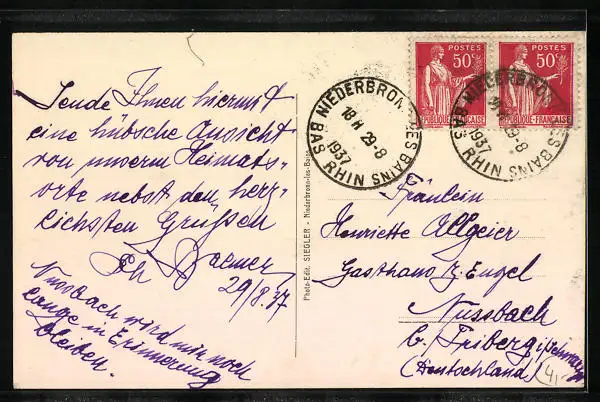 Sende Ihnen hiermit
eine hübsche Ansicht
von unserem Heimats-
orte nebst den herz-
lichsten Grüßen
29/8.37
Nussbach wird mir noch
lange in Erinnerung
bleiben.
Photo-Edit. SIEGLER - Niederbronn-les-Bains
POSTES
50c
RÉPUBLIQUE FRANÇAISE
POSTES
50c
RÉPUBLIQUE FRANÇAISE
NIEDERBRONN LES BAINS
18H 29-8
1937
BAS RHIN
NIEDERBRON
29-8
1937
BAS RHIN
Fräulein
Henriette Allgeier
Gasthaus z. Engel
Nussbach
b. Triberg i/Schwarzw
(Deutschland)